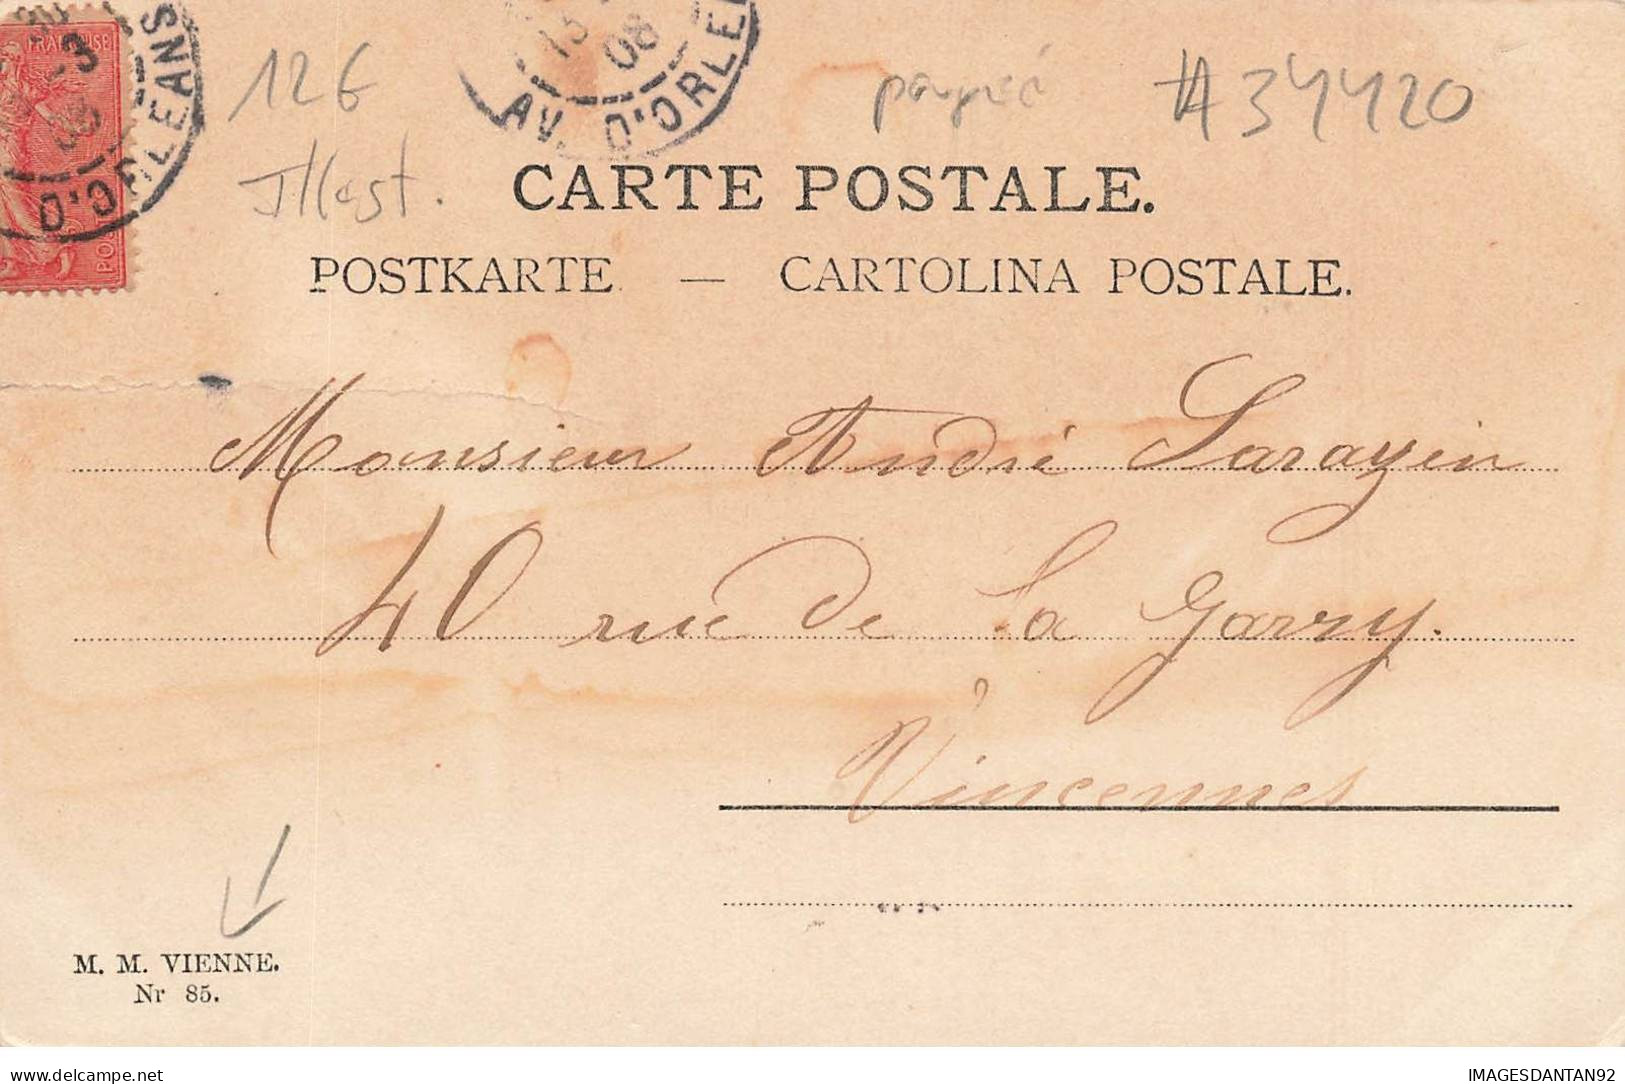 FRANÇAISE
D'ORLEANS
AV. D'ORLE
08
12€
Illust.
#34420
CARTE POSTALE.
POSTKARTE — CARTOLINA POSTALE.
Monsieur André Sarazin
40 rue de la Jarry.
Vincennes
M. M. VIENNE.
Nr 85.
delcampe.net
IMAGESDANTAN92